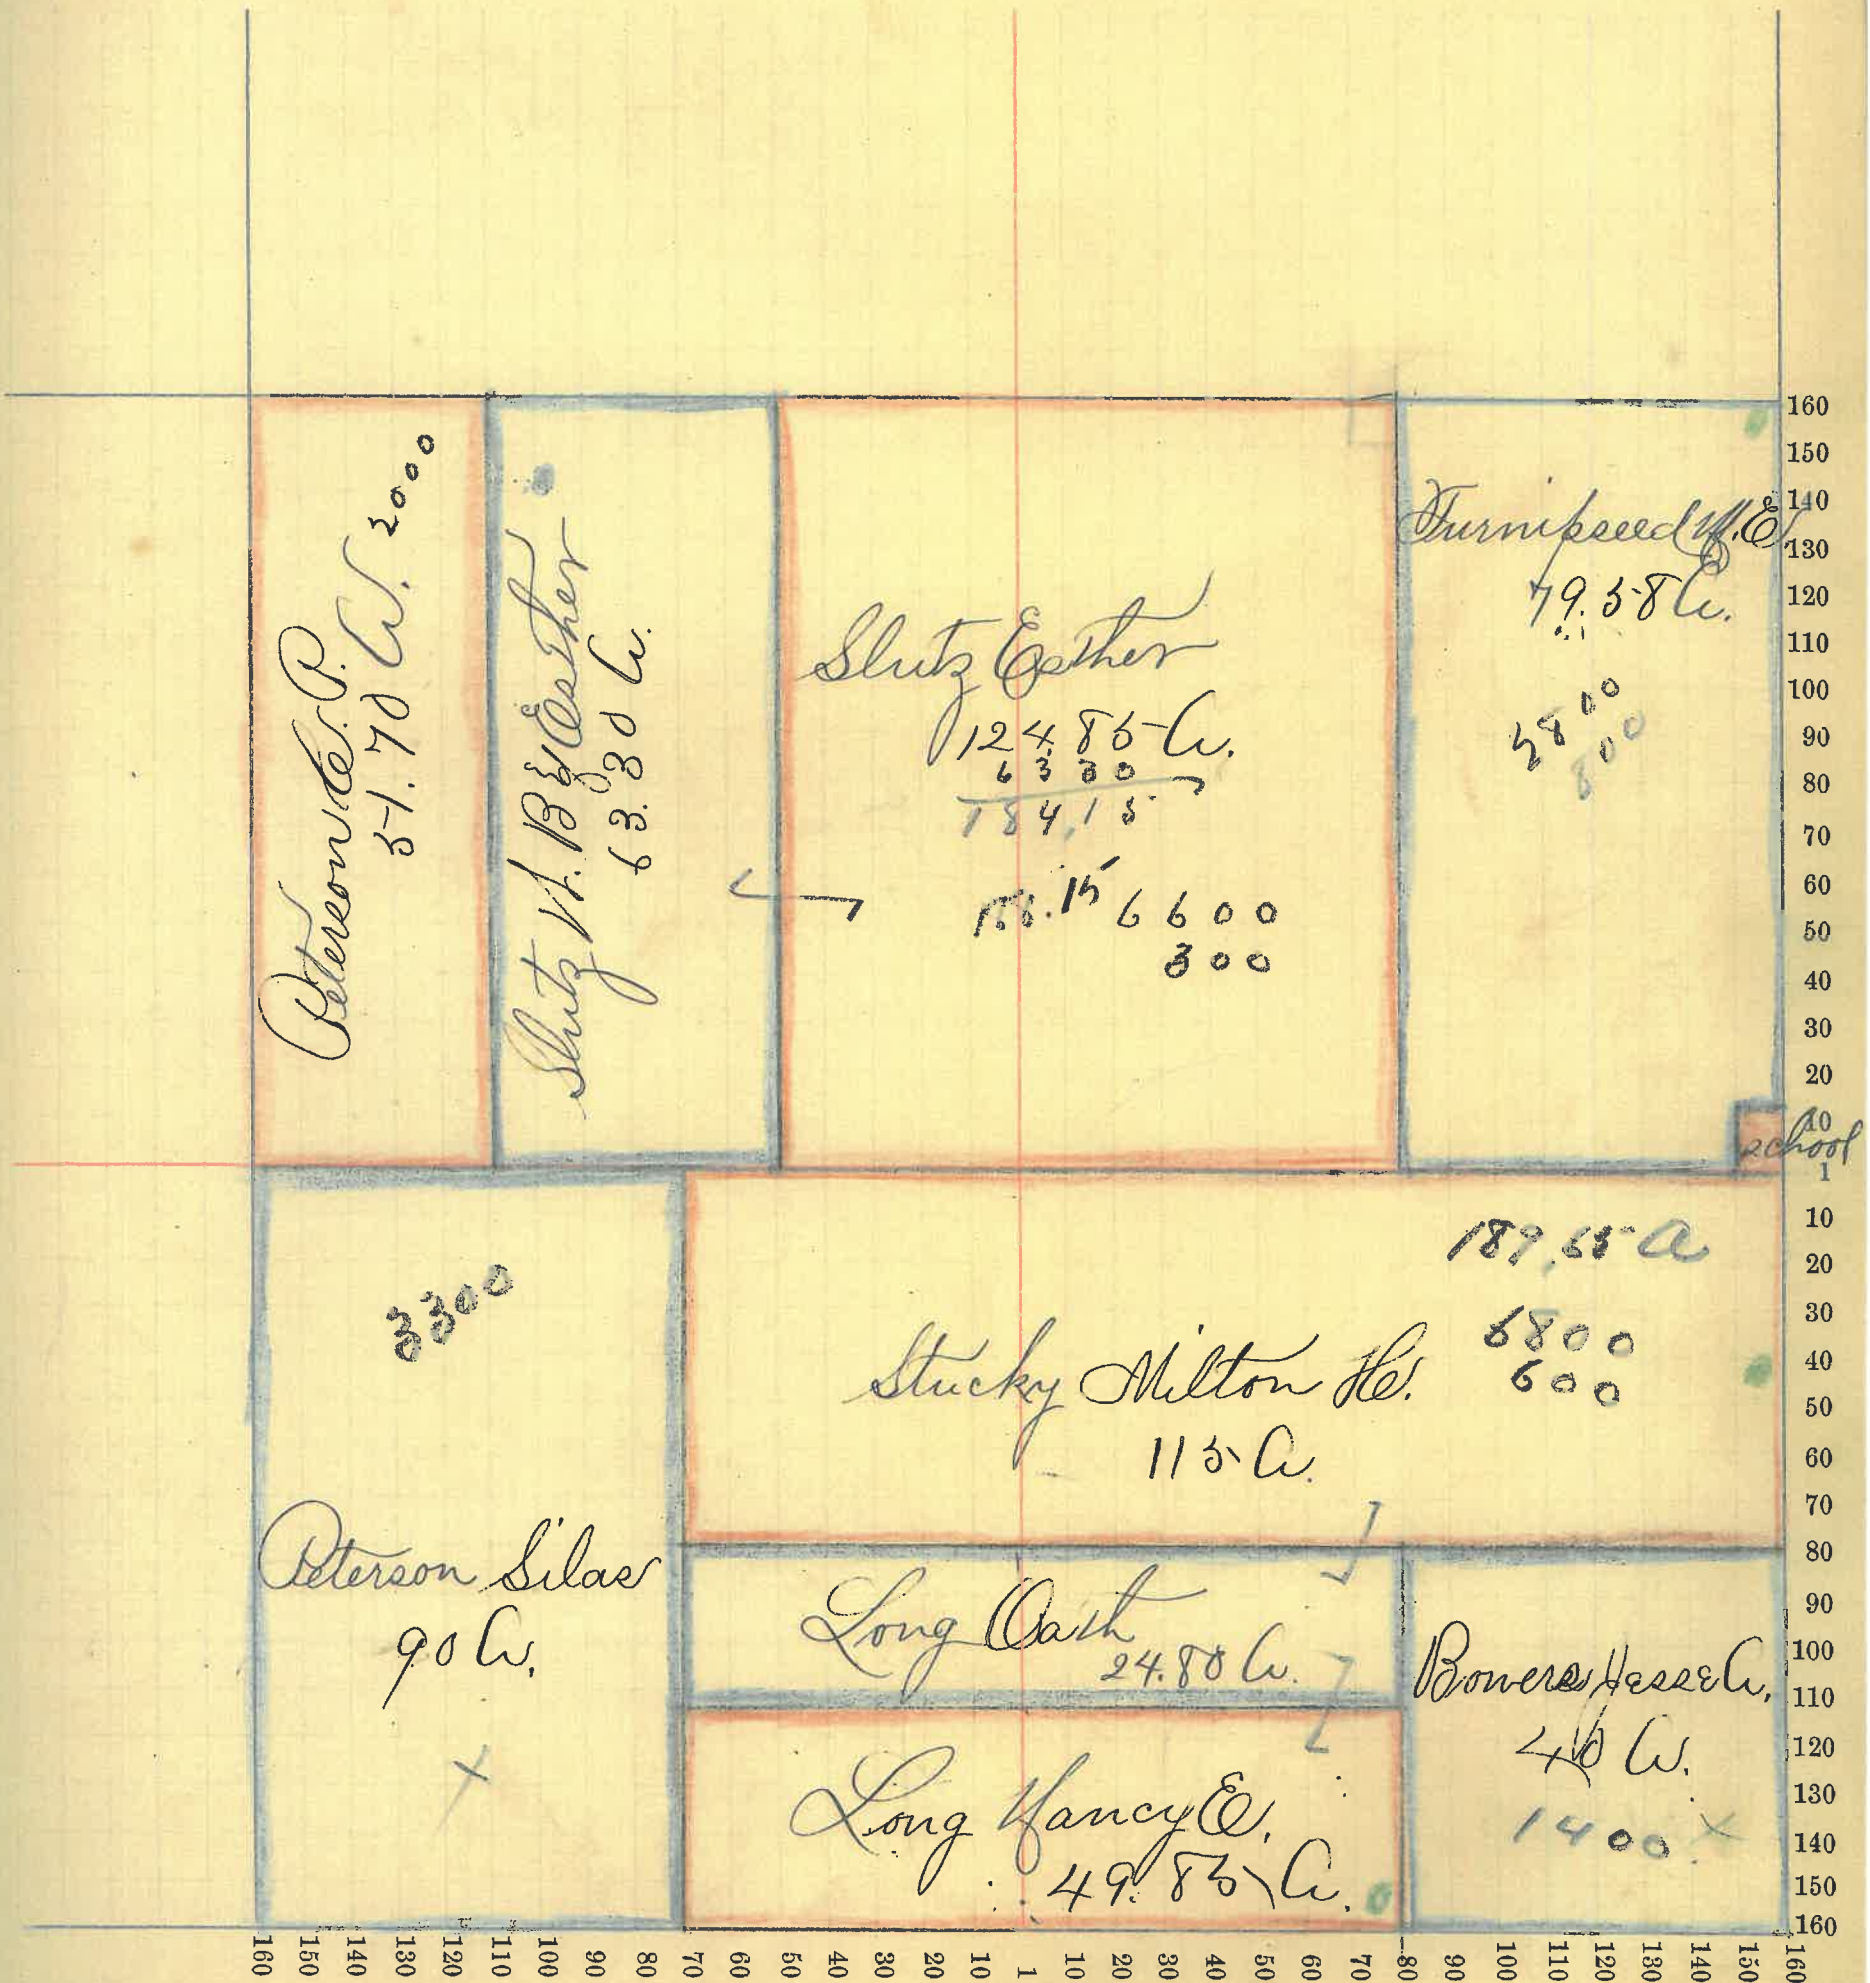 Peterson C. P.
51.70 A. 2000
Slutz W. B & Esther
63.30 A.
Slutz Esther
124.85 A.
63 30
184,15
188.15 6600
300
Turnipseed M. E.
79.58 A.
800
school
3300
Peterson Silas
90 A.
X
189,65 A
6800
600
Stucky Milton H.
115 A.
Long
24.80 A.
Long Nancy E.
49.85 A.
Bowers Jesse A.
40 A.
1400 X
160
150
140
130
120
110
100
90
80
70
60
50
40
30
20
10
1
10
20
30
40
50
60
70
80
90
100
110
120
130
140
150
160
160 150 140 130 120 110 100 90 80 70 60 50 40 30 20 10 1 10 20 30 40 50 60 70 80 90 100 110 120 130 140 150 160